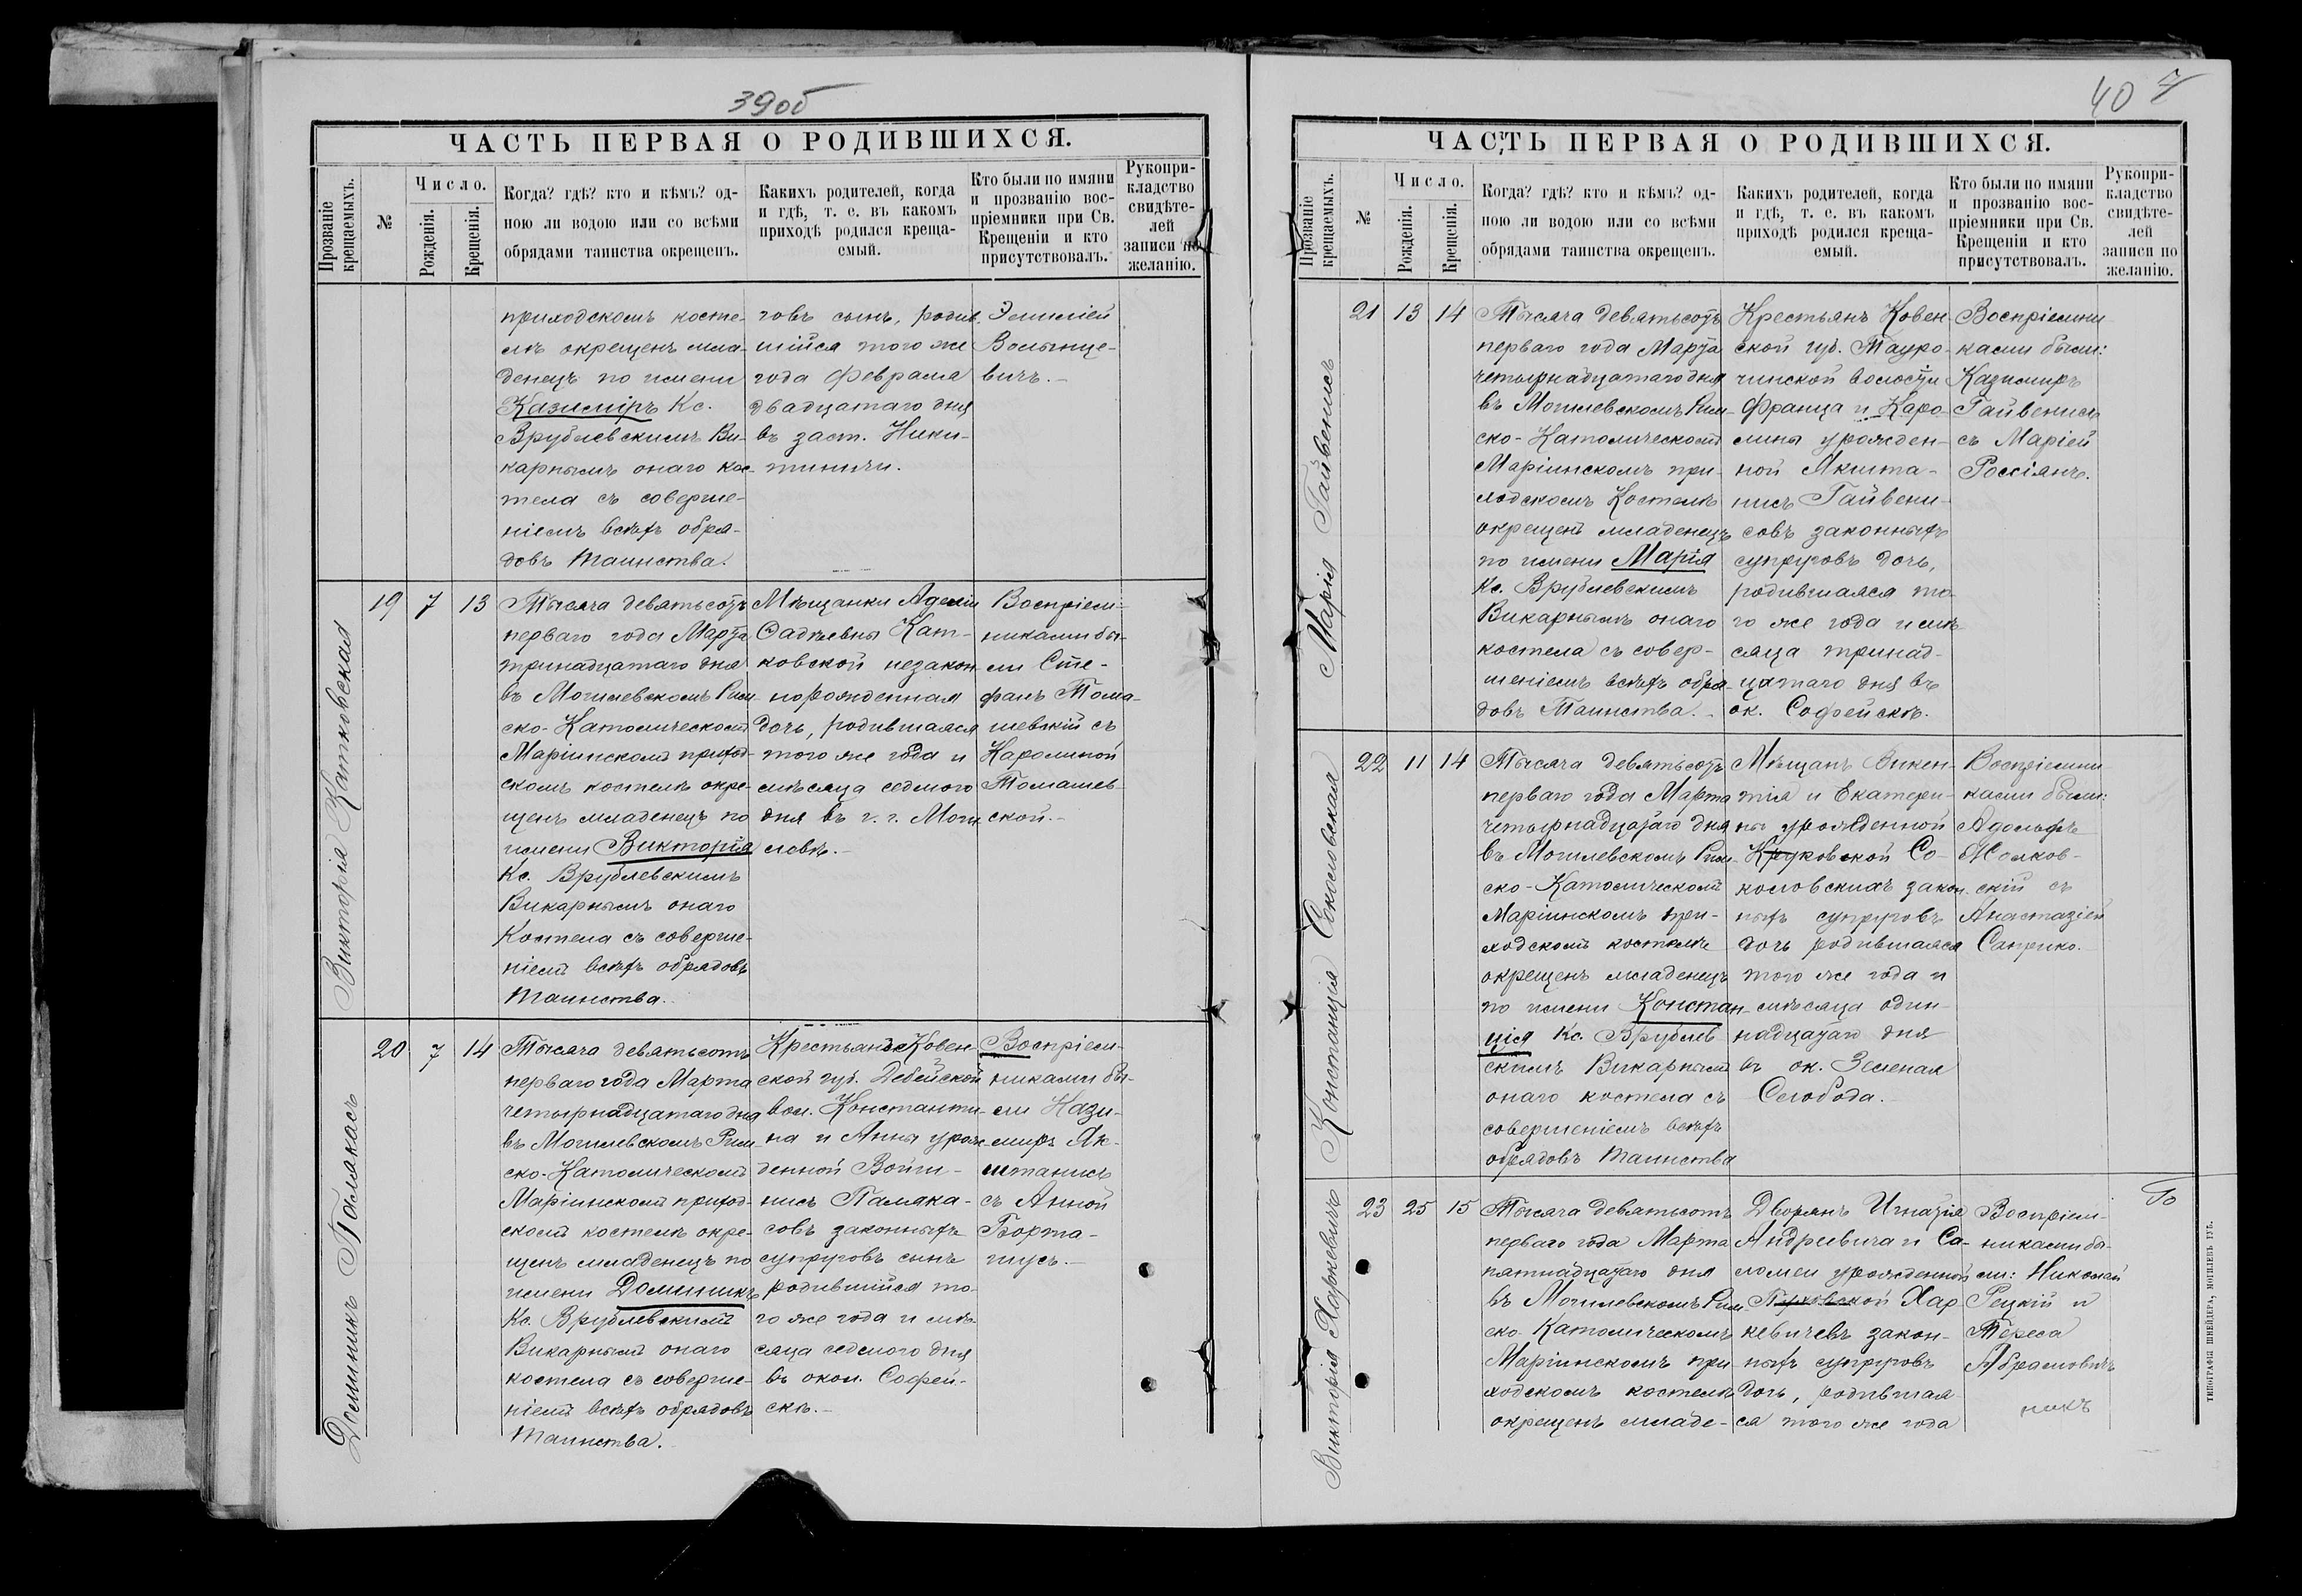 39об
ЧАСТЬ ПЕРВАЯ О РОДИВШИХСЯ.
Прозваніе крещаемыхъ.
№
Число.
Рожденія.
Крещенія.
Когда? гдѣ? кто и кѣмъ? од-
ною ли водою или со всѣми
обрядами таинства окрещенъ.
Какихъ родителей, когда
и гдѣ, т. е. въ какомъ
приходѣ родился креща-
емый.
Кто были по имяни
и прозванію вос-
пріемники при Св.
Крещеніи и кто
присутствовалъ.
Рукопри-
кладство
свидѣте-
лей
записи по
желанію.
приходскомъ косте-
лѣ окрещенъ мла-
денецъ по имени
Казиміръ Кс.
Врублевскимъ Ви-
карнымъ онаго кос-
тела съ соверше-
ніемъ всѣхъ обря-
довъ Таинства.
говъ сынъ, родив-
шійся того же
года Февраля
двадцатаго дня
въ заст. Ники-
тиничи.
Эмиліей
Волынце-
вичъ.-
Викторія Катковская
19 7 13
Тысяча девятьсотъ
перваго года Марта
тринадцатаго дня
въ Могилевскомъ Рим-
ско-Католическомъ
Маріинскомъ приход-
скомъ костелѣ окре-
щенъ младенецъ по
имени Викторія
Кс. Врублевскимъ
Викарнымъ онаго
Костела съ соверше-
ніемъ всѣхъ обрядовъ
Таинства.
Мѣщанки Аделіи
Фадѣевны Кат-
ковской незакон-
норожденная
дочь, родившаяся
того же года и
мѣсяца седмого
дня въ г. г. Моги-
левѣ.-
Воспріем-
никами бы-
ли Сте-
фанъ Тома-
шевскій съ
Каролиной
Томашев-
ской.-
Доминикъ Палякасъ
20 7 14
Тысяча девятьсотъ
перваго года Марта
четырнадцатаго дня
въ Могилевскомъ Рим-
ско-Католическомъ
Маріинскомъ приход-
скомъ костелѣ окре-
щенъ младенецъ по
имени Доминикъ
Кс. Врублевскимъ
Викарнымъ онаго
костела съ соверше-
ніемъ всѣхъ обрядовъ
Таинства.
Крестьянъ Ковен-
ской губ. Дебейской
вол. Константи-
на и Анны урож-
денной Войти-
нисъ Паляка-
совъ законныхъ
супруговъ сынъ
родившійся то-
го же года и мѣ-
сяца седмого дня
въ окол. Софей-
скѣ.-
Воспріем-
никами бы-
ли Кази-
миръ Як-
штанисъ
съ Анной
Борта-
шусъ.-
40 7
ЧАСТЬ ПЕРВАЯ О РОДИВШИХСЯ.
Прозваніе крещаемыхъ.
№
Число.
Рожденія.
Крещенія.
Когда? гдѣ? кто и кѣмъ? од-
ною ли водою или со всѣми
обрядами таинства окрещенъ.
Какихъ родителей, когда
и гдѣ, т. е. въ какомъ
приходѣ родился креща-
емый.
Кто были по имяни
и прозванію вос-
пріемники при Св.
Крещеніи и кто
присутствовалъ.
Рукопри-
кладство
свидѣте-
лей
записи по
желанію.
Марія Гайвенисъ
21 13 14
Тысяча девятьсотъ
перваго года Марта
четырнадцатаго дня
въ Могилевскомъ Рим-
ско-Католическомъ
Маріинскомъ при-
ходскомъ Костелѣ
окрещенъ младенецъ
по имени Марія
Кс. Врублевскимъ
Викарнымъ онаго
костела съ совер-
шеніемъ всѣхъ обря-
довъ Таинства.-
Крестьянъ Ковен-
ской губ. Тауро-
чинской волости
Франца и Каро-
лины урожден-
ной Якшта-
нисъ Гайвени-
совъ законныхъ
супруговъ дочь,
родившаяся то-
го же года и мѣ-
сяца тринад-
цатаго дня въ
ок. Софейскѣ.
Воспріемни-
ками были:
Казимиръ
Гайвенисъ
съ Маріей
Россіянъ.
Констанція Соколовская
22 11 14
Тысяча девятьсотъ
перваго года Марта
четырнадцатаго дня
въ Могилевскомъ Рим-
ско-Католическомъ
Маріинскомъ при-
ходскомъ костелѣ
окрещенъ младенецъ
по имени Констан-
ція Кс. Врублев-
скимъ Викарнымъ
онаго костела съ
совершеніемъ всѣхъ
обрядовъ Таинства
Мѣщанъ Викен-
тія и Екатери-
ны урожденной
Круковской Со-
коловскихъ закон-
ныхъ супруговъ
дочь родившаяся
того же года и
мѣсяца один-
надцатаго дня
въ ок. Зеленая
Слобода.
Воспріемни-
ками были:
Адольфъ
Жолков-
скій съ
Анастазіей
Саприко.
Викторія Харкевичъ
23 25 15
Тысяча девятьсотъ
перваго года Марта
пятнадцатаго дня
въ Могилевскомъ Рим-
ско-Католическомъ
Маріинскомъ при-
ходскомъ костелѣ
окрещенъ младе-
Дворянъ Игнатія
Андреевича и Са-
ломеи урожденной
Гурковской Хар-
кевичевъ закон-
ныхъ супруговъ
дочь, родившая-
ся того же года
Воспріем-
никами бы-
ли: Николай
Рецкій и
Тереса
Абрамовичъ
ТИПОГРАФІЯ ШНЕЙДЕРА, МОГИЛЕВЪ ГУБ.